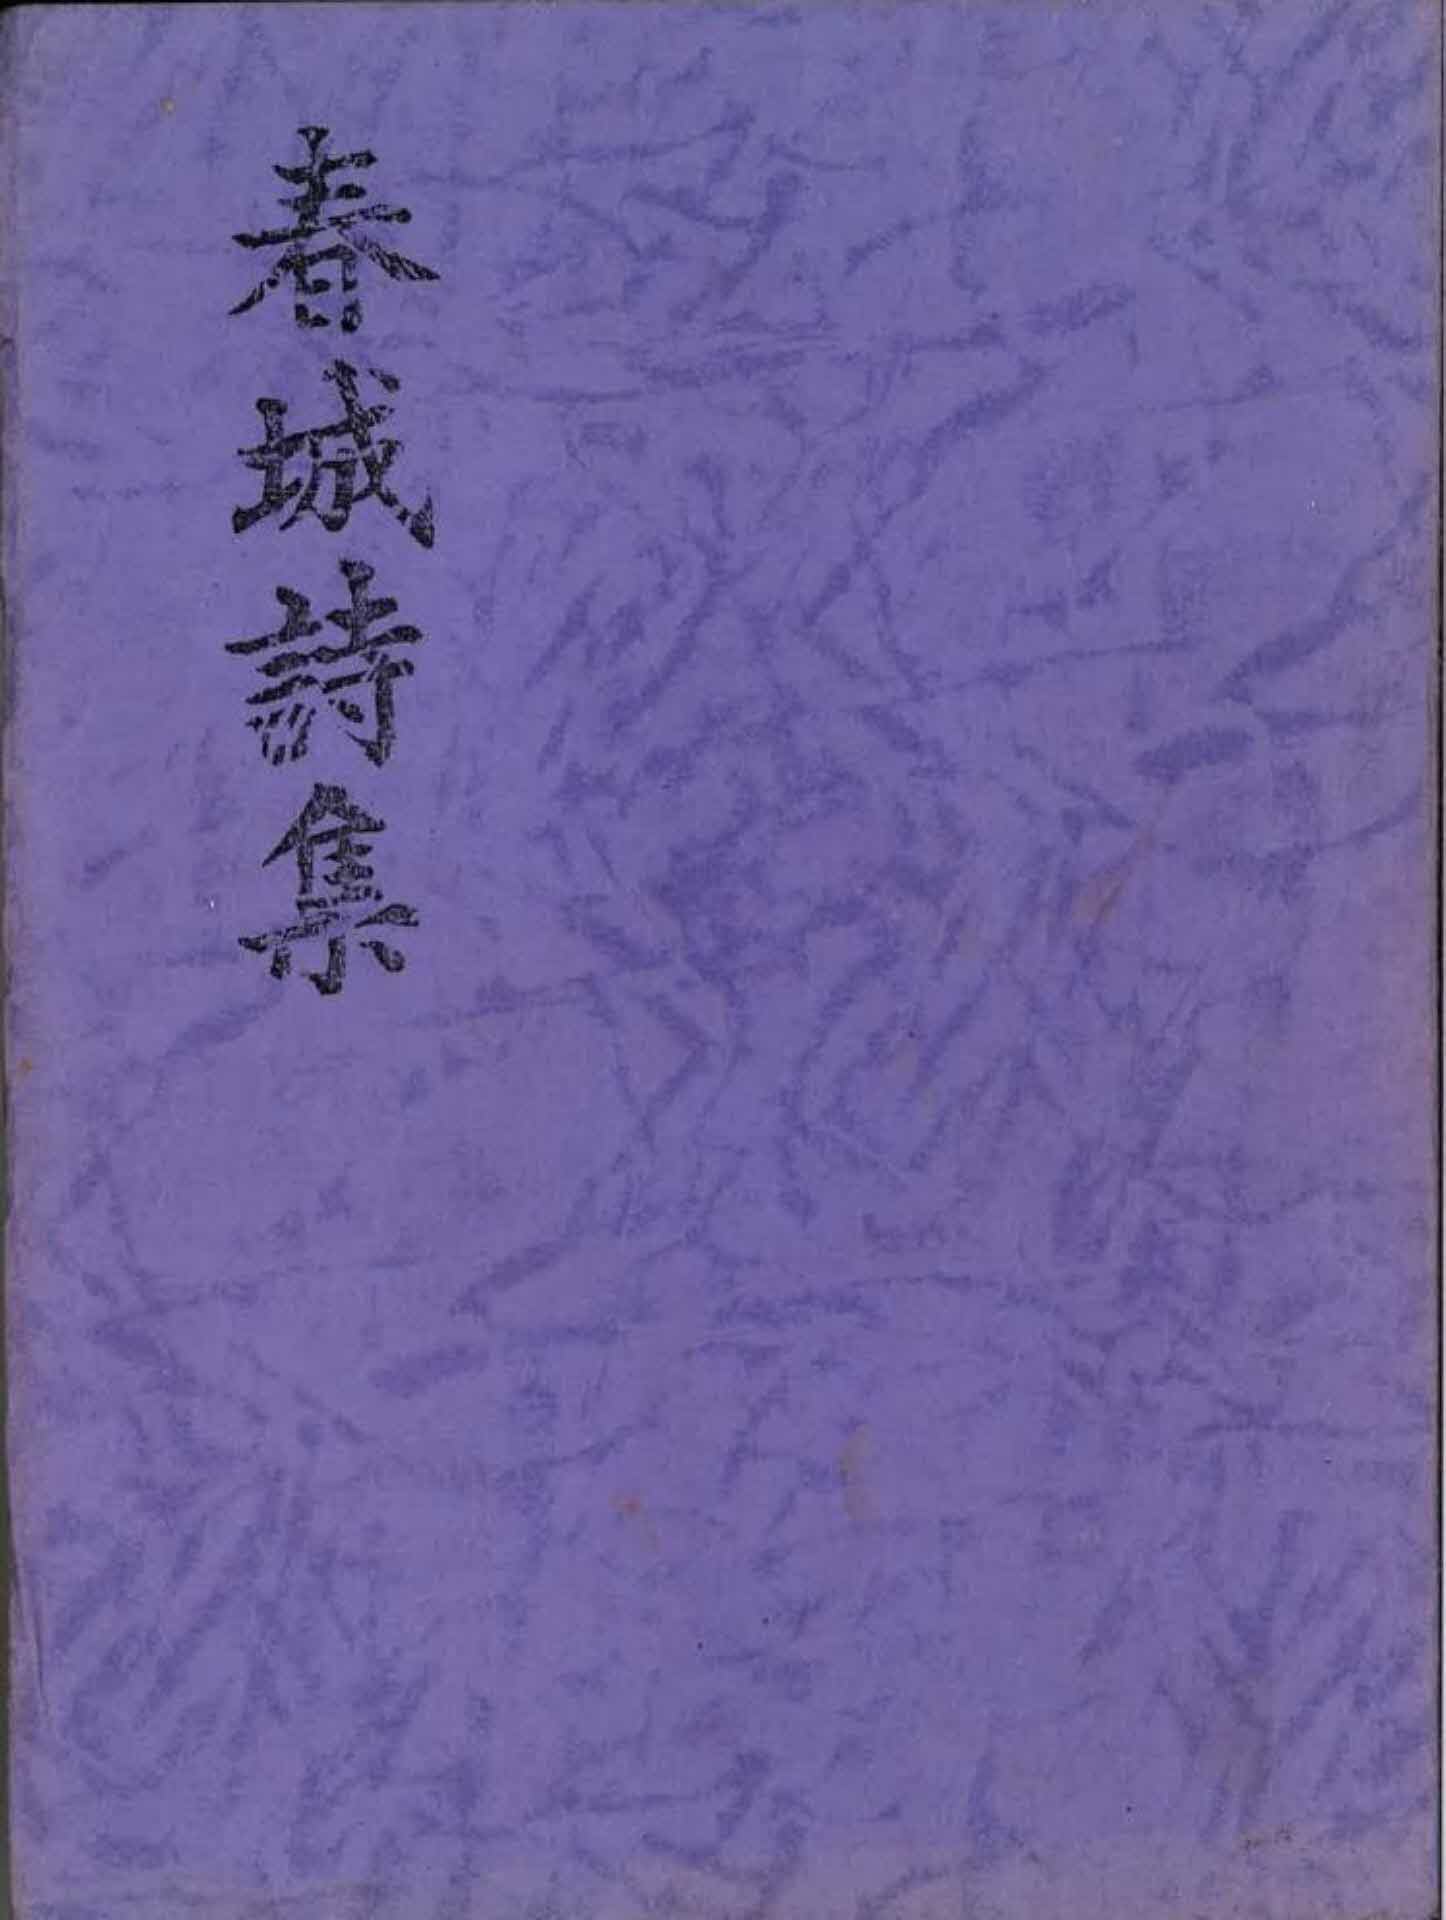 春城詩集